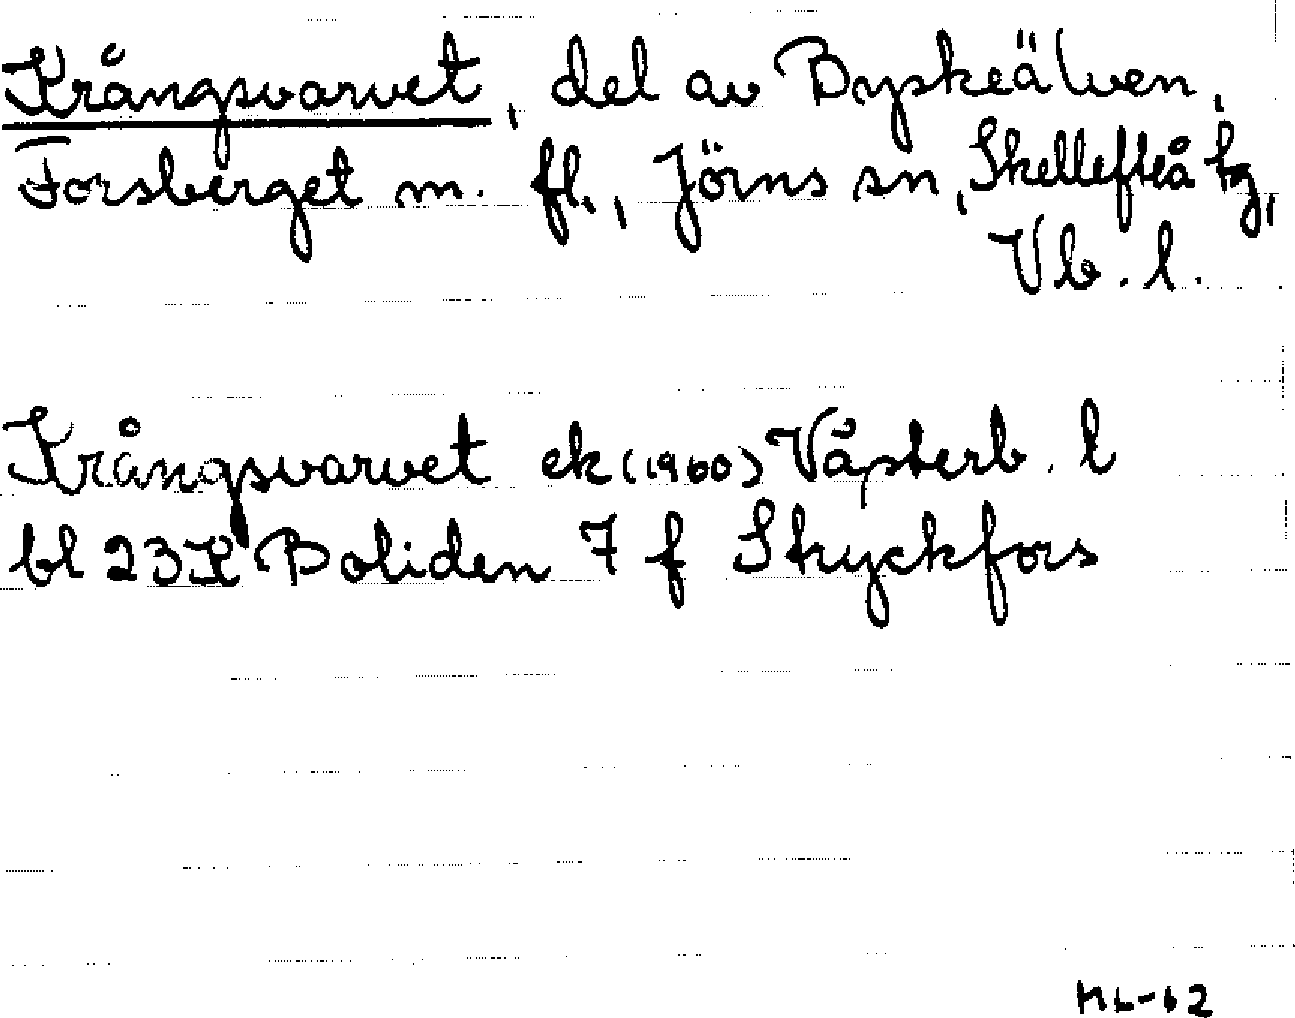 Krångsvarvet, del av Byskeälven,
Forsberget m. fl., Jörns sn, Skellefteå tg,
Vb. l.
Krångsvarvet ek (1960) Västerb. l
bl 23K Boliden 7 f Stryckfors
HL-62